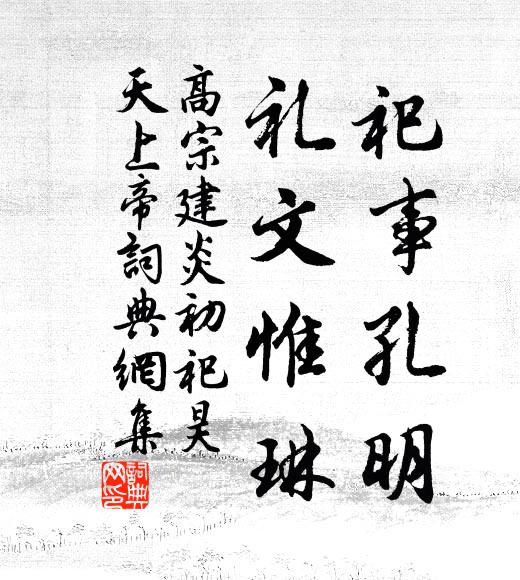 祀事孔明
礼文惟琳
高宗建炎初祀昊
天上帝詞典網集
詞典網印